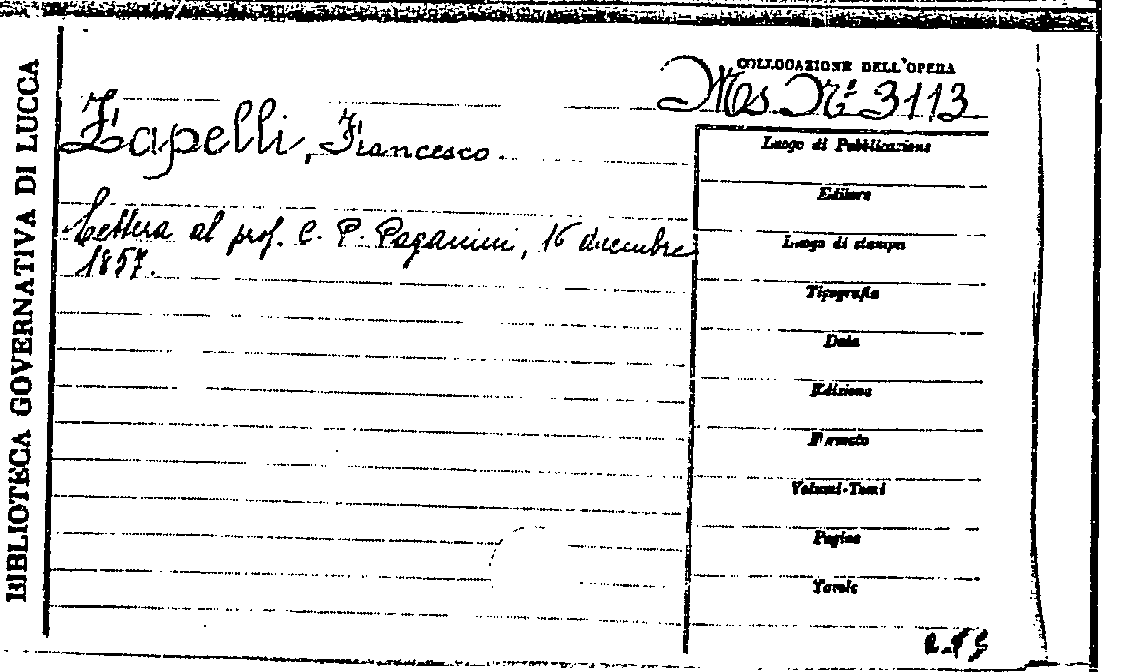 BIBLIOTECA GOVERNATIVA DI LUCCA
COLLOCAZIONE DELL'OPERA
Ms. Nº 3113
Zapelli, Francesco.
Lettera al prof. C. P. Paganini, 16 dicembre
1857.
Luogo di Pubblicazione
Editore
Luogo di stampa
Tipografia
Data
Edizione
Formato
Volumi-Tomi
Pagine
Tavole